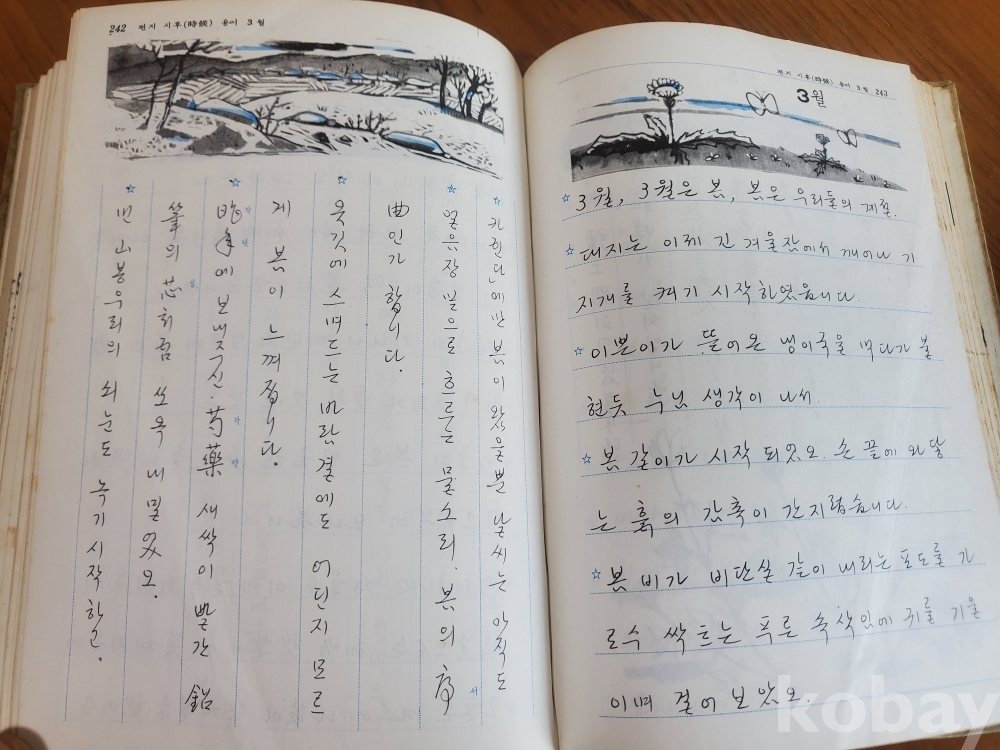 242 편지 시후(時候) 용어 3월
카렌단에만 봄이 왔을뿐 날씨는 아직도
얼음장 밑으로 흐르는 물소리. 봄의 序
서
曲인가 합니다.
옷깃에 스며드는 바람결에도 어딘지 모르
게 봄이 느껴집니다.
昨年에 보내주신. 芍藥 새싹이 빨간 鉛
작 년 작 약
筆의 芯처럼 쏘옥 내밀었오.
심
먼 산봉우리의 쇠눈도 녹기 시작하고.
편지 시후(時候) 용어 3월 243
3월
3월, 3월은 봄, 봄은 우리들의 계절.
대지는 이제 긴 겨울잠에서 깨어나 기
지개를 켜기 시작하였읍니다.
이쁜이가 뜯어온 냉이국을 먹다가 불
현듯 누님 생각이 나서.
봄 갈이가 시작 되었오. 손 끝에 와 닿
는 흙의 감촉이 간지럽습니다.
봄 비가 비단실 같이 내리는 포도를 가
로수 싹 트는 푸른 속삭임에 귀를 기울
이며 걸어 보았오.
kobay